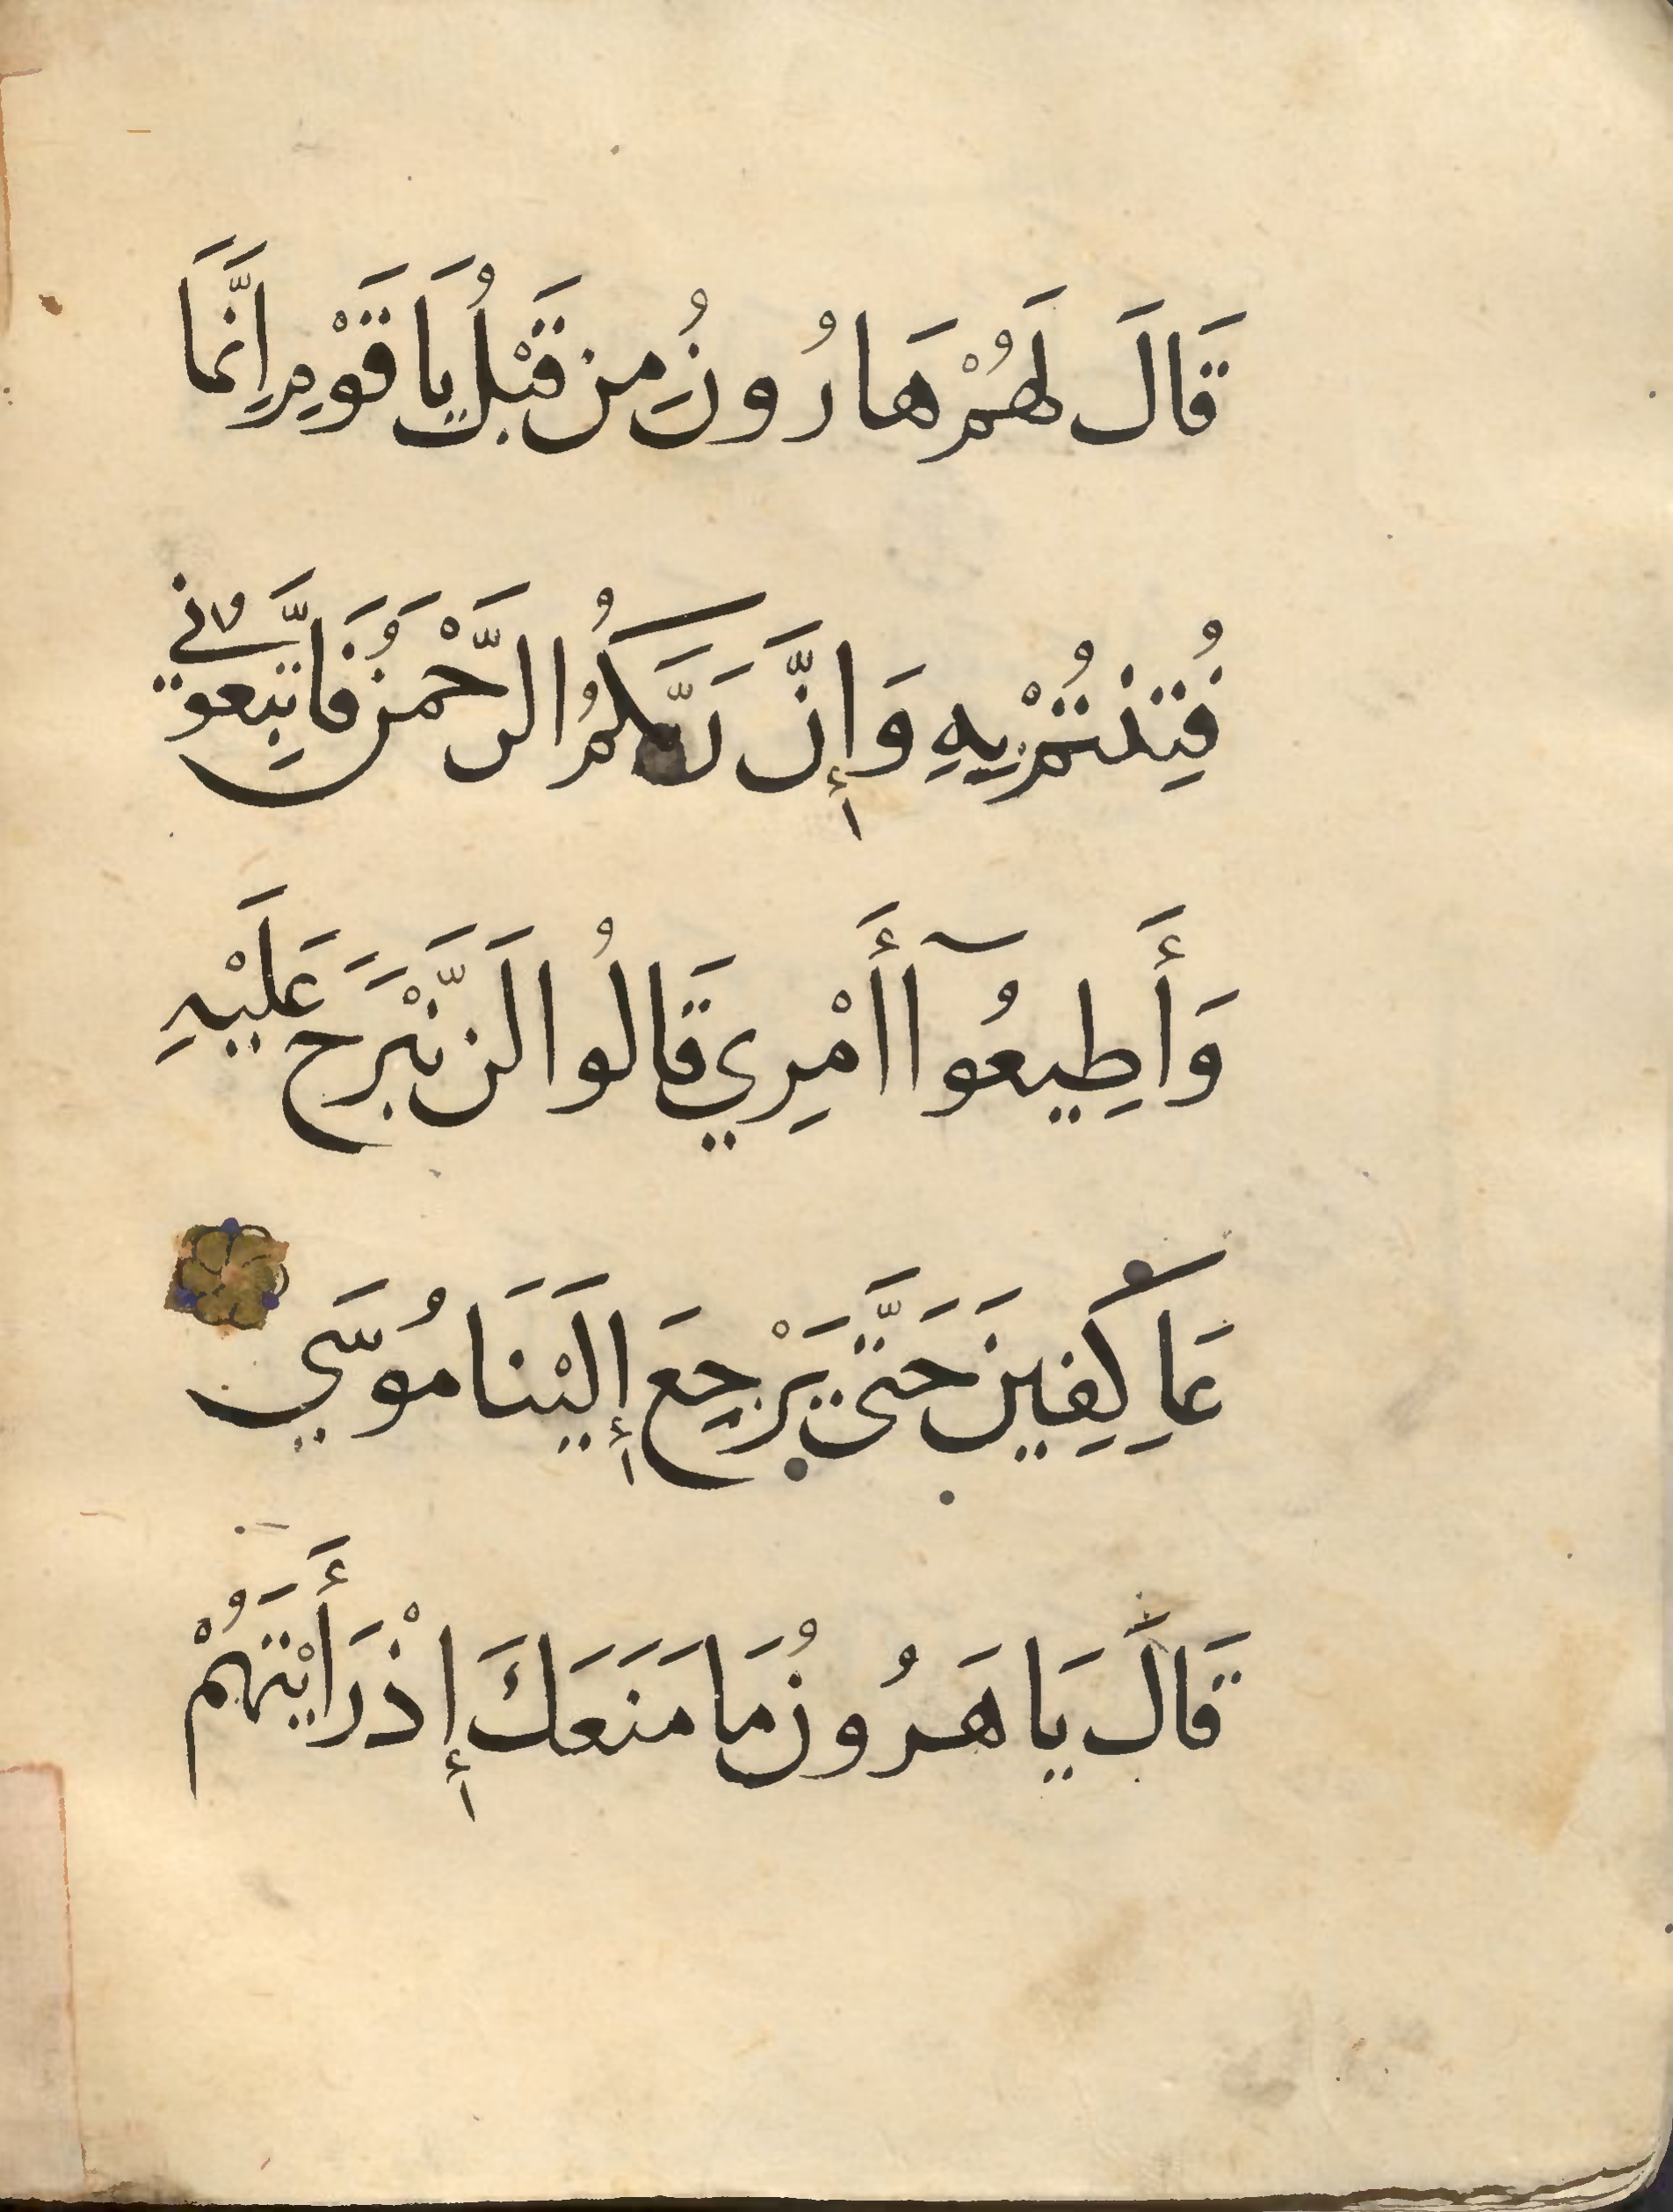 قَالَ لَهُمْ هَارُونُ مِن قَبْلُ يَا قَوْمِ إِنَّمَا
فُتِنْتُمْ بِهِ وَإِنَّ رَبَّكُمُ الرَّحْمَنُ فَاتَّبِعُونِي
وَأَطِيعُوآ أَمْرِي قَالُوا لَن نَّبْرَحَ عَلَيْهِ
عَاكِفِينَ حَتَّى يَرْجِعَ إِلَيْنَا مُوسَي
قَالَ يَا هَرُونُ مَا مَنَعَكَ إِذْ رَأَيْتَهُمْ